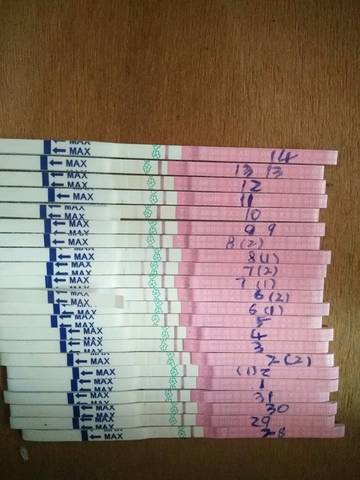 ← MAX 14
← MAX 13 13
← MAX 12
← MAX 11
← MAX 10
← MAX 9 9
← MAX 8(2)
← MAX 8(1)
← MAX 7(2)
← MAX 7(1)
← MAX 6(2)
← MAX 6(1)
← MAX 5
← MAX 4
← MAX 3
← MAX 2(2)
← MAX (1)2
← MAX 1
← MAX 31
← MAX 30
← MAX 29
← MAX 28